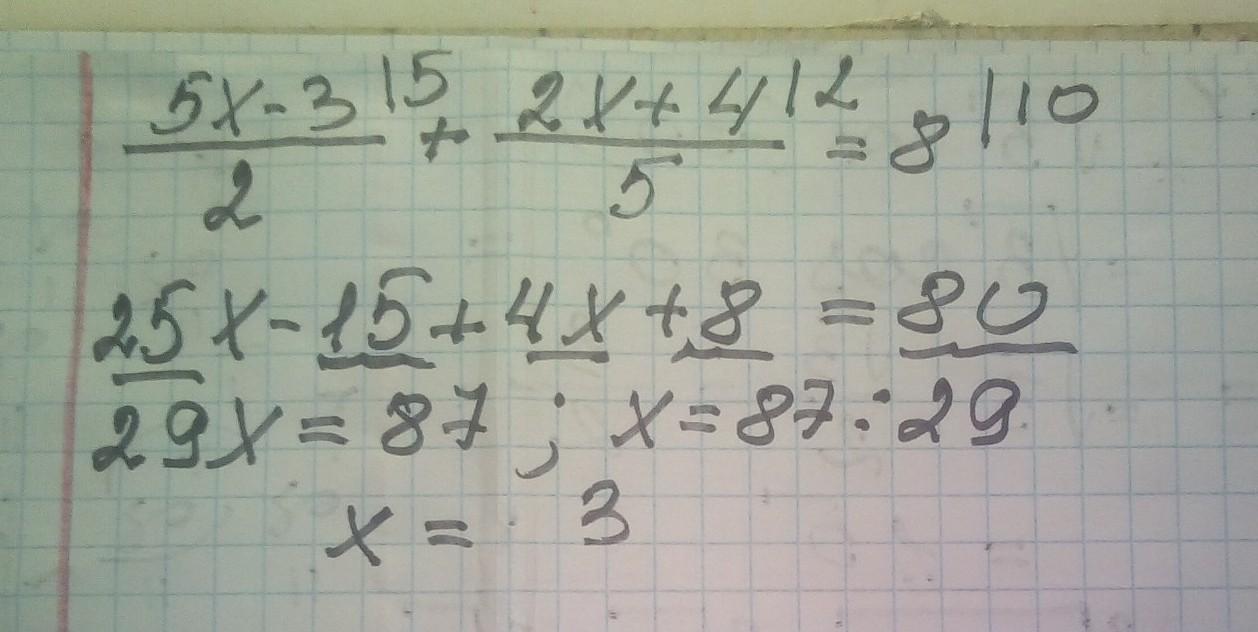 5x-3|5 + 2x+4|2 = 8|10
2 5
25x-15+4x+8 = 80
29x = 87 ; x = 87:29
x = 3